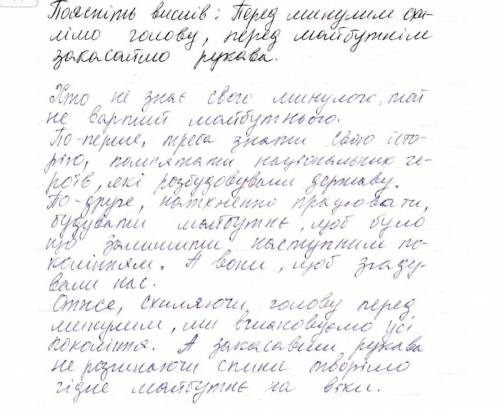 Поясніть вислів: Перед минулим схи-
лімо голову, перед майбутнім
закасаймо рукава.
Хто не знає свого минулого, той
не вартий майбутнього.
По-перше, треба знати свою істо-
рію, пам'ятати національних ге-
роїв, які розбудовували державу.
По-друге, натхненно працювати,
будувати майбутнє, щоб було
що залишити наступним по-
колінням. А вони, щоб згаду-
вали нас.
Отже, схиляючи голову перед
минулим, ми вшановуємо усі
покоління. А закасавши рукава
не розгинаючи спини творімо
гідне майбутнє на віки.